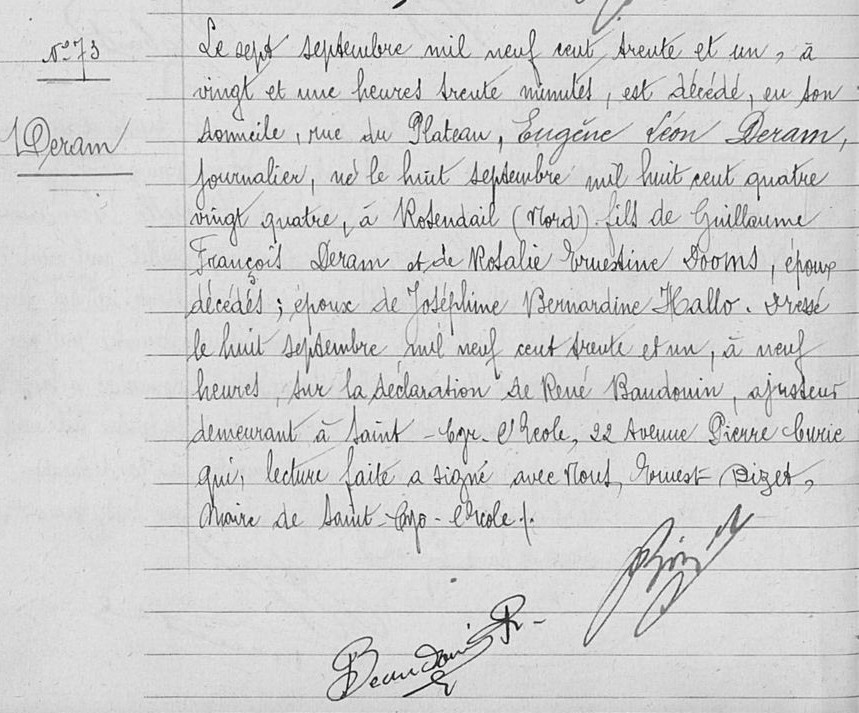 N° 73
Le sept septembre mil neuf cent trente et un, à
vingt et une heures trente minutes, est décédé, en son
Deram
domicile, rue du Plateau, Eugène Léon Deram,
journalier, né le huit septembre mil huit cent quatre
vingt quatre, à Rosendail (Nord) fils de Guillaume
François Deram et de Rosalie Ernestine Dooms, époux
décédés; époux de Joséphine Bernardine Hallo. Dressé
le huit septembre mil neuf cent trente et un, à neuf
heures, sur la déclaration de René Baudouin, ajusteur
demeurant à Saint-Cyr-l'Ecole, 22 Avenue Pierre Curie
qui, lecture faite a signé avec Nous, Ernest Bizet,
Maire de Saint-Cyr-l'Ecole /.
Bizet
Beaudouin R.